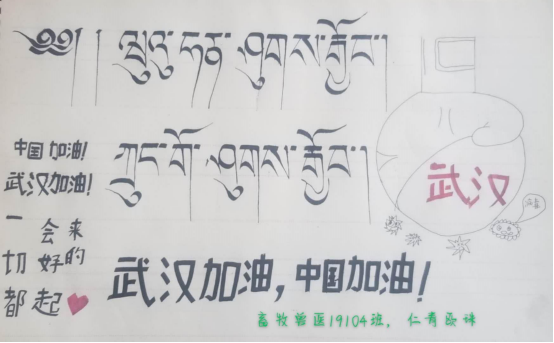 ༄༅། །ཝུའུ་ཧན་ ཤུགས་རྒྱོབ། །
ཀྲུང་གོ་ ཤུགས་རྒྱོབ། །
中国加油!
武汉加油!
一切都
会好起
来的
武汉
武汉加油,中国加油!
畜牧兽医19104班,仁青